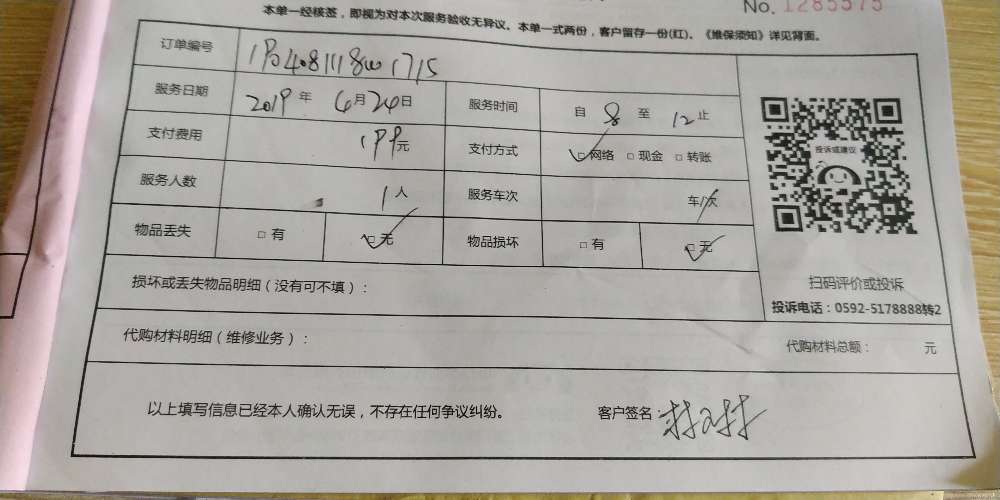 No. 1285575
本单一经核签，即视为对本次服务验收无异议。本单一式两份，客户留存一份(红)。《维保须知》详见背面。
订单编号
服务日期 2019 年 6 月 24 日 服务时间 自 8 至 12 止
支付费用 199 元 支付方式 ☑网络 □现金 □转账
服务人数 1 人 服务车次 车/次
物品丢失 □有 ☑无 物品损坏 □有 ☑无
投诉或建议
扫码评价或投诉
投诉电话：0592-5178888转2
损坏或丢失物品明细（没有可不填）：
代购材料明细（维修业务）： 代购材料总额： 元
以上填写信息已经本人确认无误，不存在任何争议纠纷。 客户签名